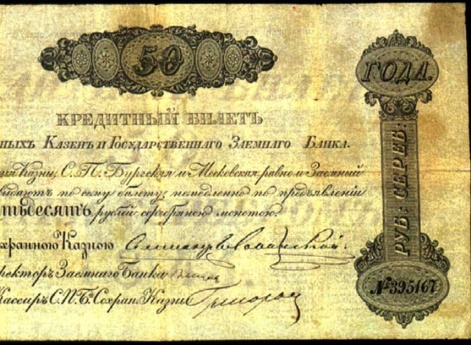 50
ГОДА.
КРЕДИТНЫЙ БИЛЕТЪ
НЫХЪ КАЗЕНЪ И ГОСУДАРСТВЕННАГО ЗЕМНАГО БАНКА.
Казны, С. П. Бургская и Московская, равно и Заемный
по сему билету, немедленно по предъявленіи
тьдесятъ рублей серебряною монетою.
охранною Казною
ректоръ Заемнаго Банка
Кассиръ С. П. Б. Сохран. Казны
РУБ: СЕРЕБ:
№ 395167